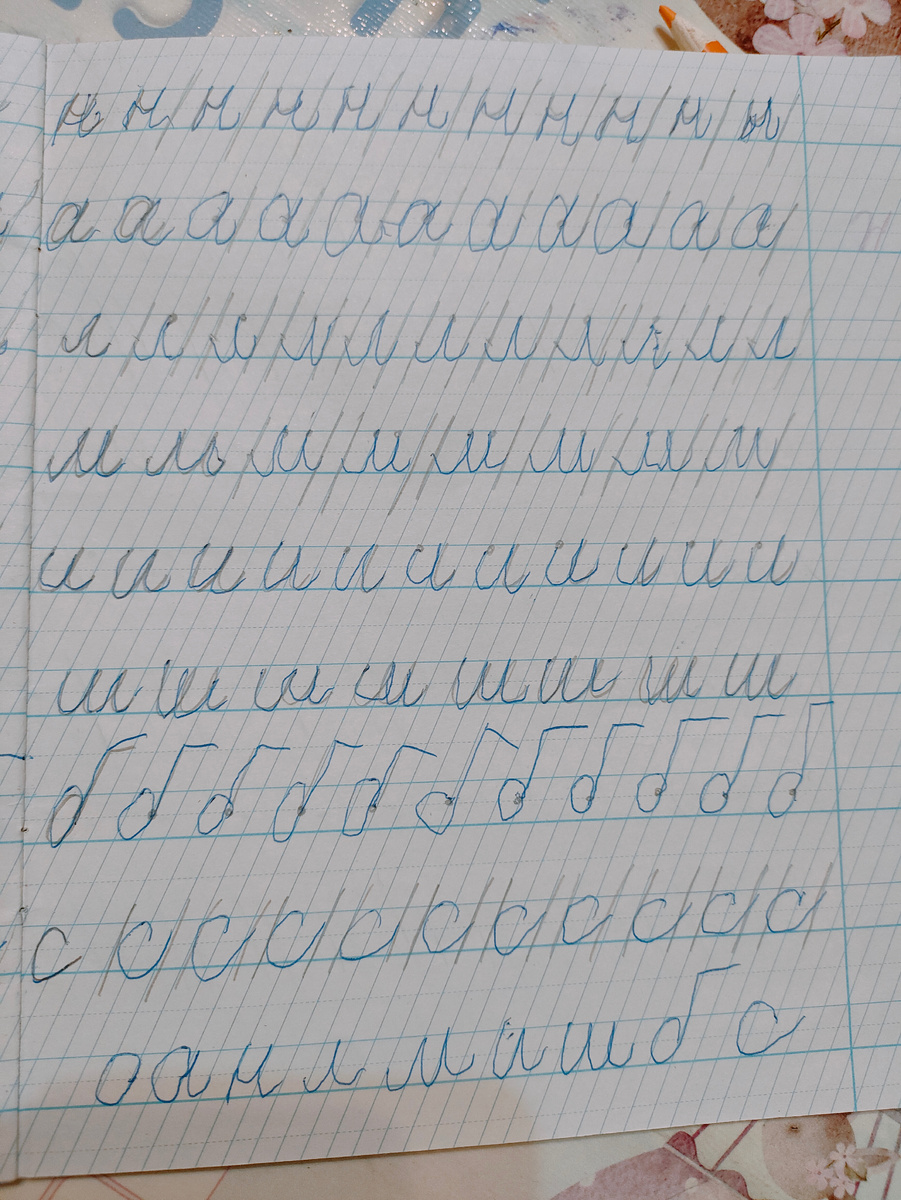 н н н н н н н н н н н
а а а а а а а а а а а
л л л л л л л л л л л
м м м м м м м м
и и и и и и и и и и и
ш ш ш ш ш ш ш ш
б б б б б б б б б б б
с с с с с с с с с с с
о а н л м и ш б с